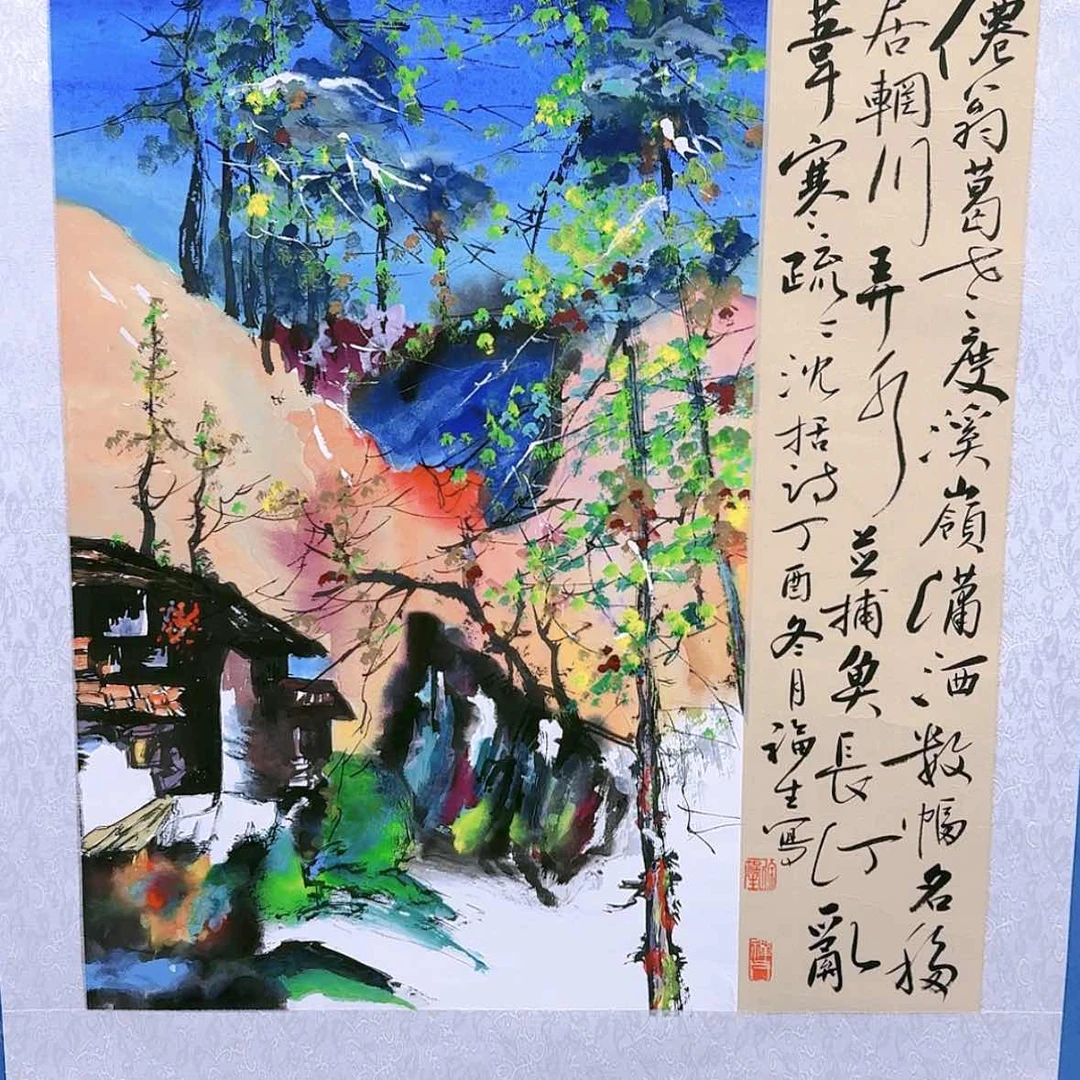 僊翁葛老度溪嶺瀟洒數幅名移
居輞川弄水並捕魚長汀亂
葦寒疏〻沈括詩丁酉冬月福生寫